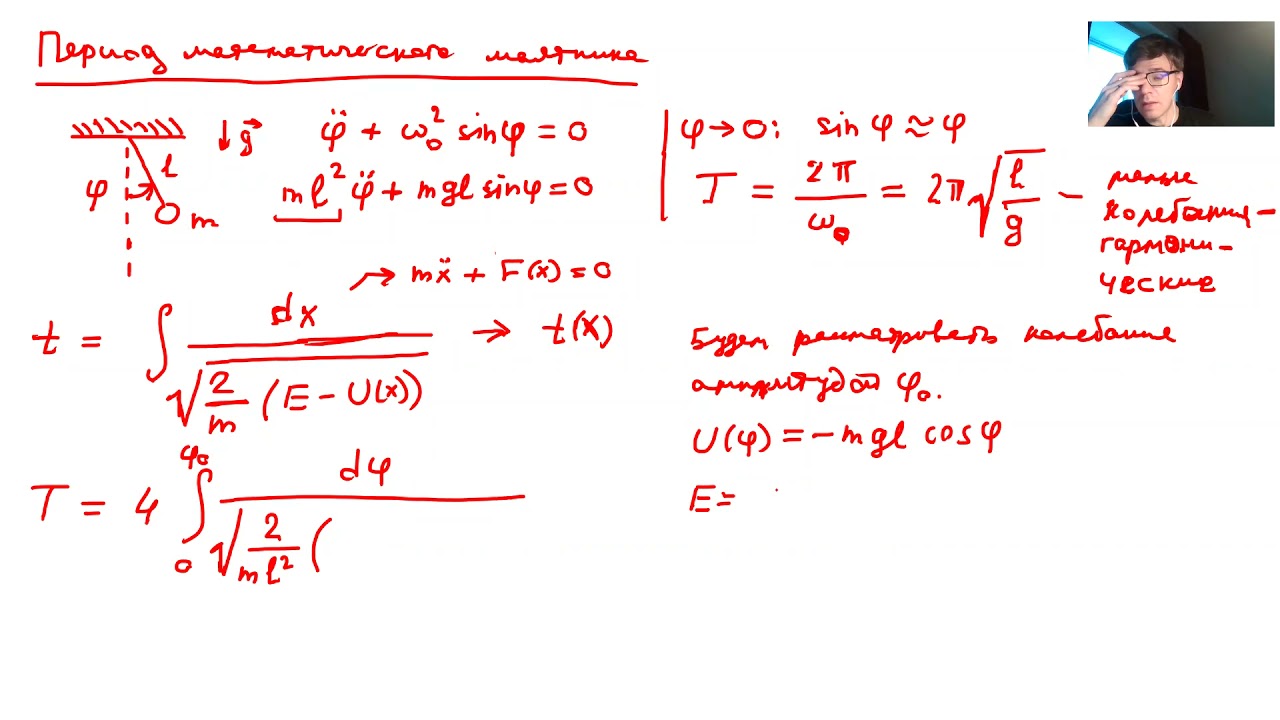 Период математического маятника
g⃗
φ l
m
φ̈ + ω₀² sinφ = 0
ml² φ̈ + mgl sinφ = 0
φ → 0: sin φ ≈ φ
T = 2π/ω₀ = 2π√(l/g) — малые
колебания —
гармони-
ческие
→ mẍ + F(x) = 0
t = ∫ dx / √(2/m (E − U(x))) → t(x)
Будем рассматривать колебания
амплитудой φ₀.
U(φ) = −mgl cosφ
E =
T = 4 ∫₀^φ₀ dφ / √(2/ml² (